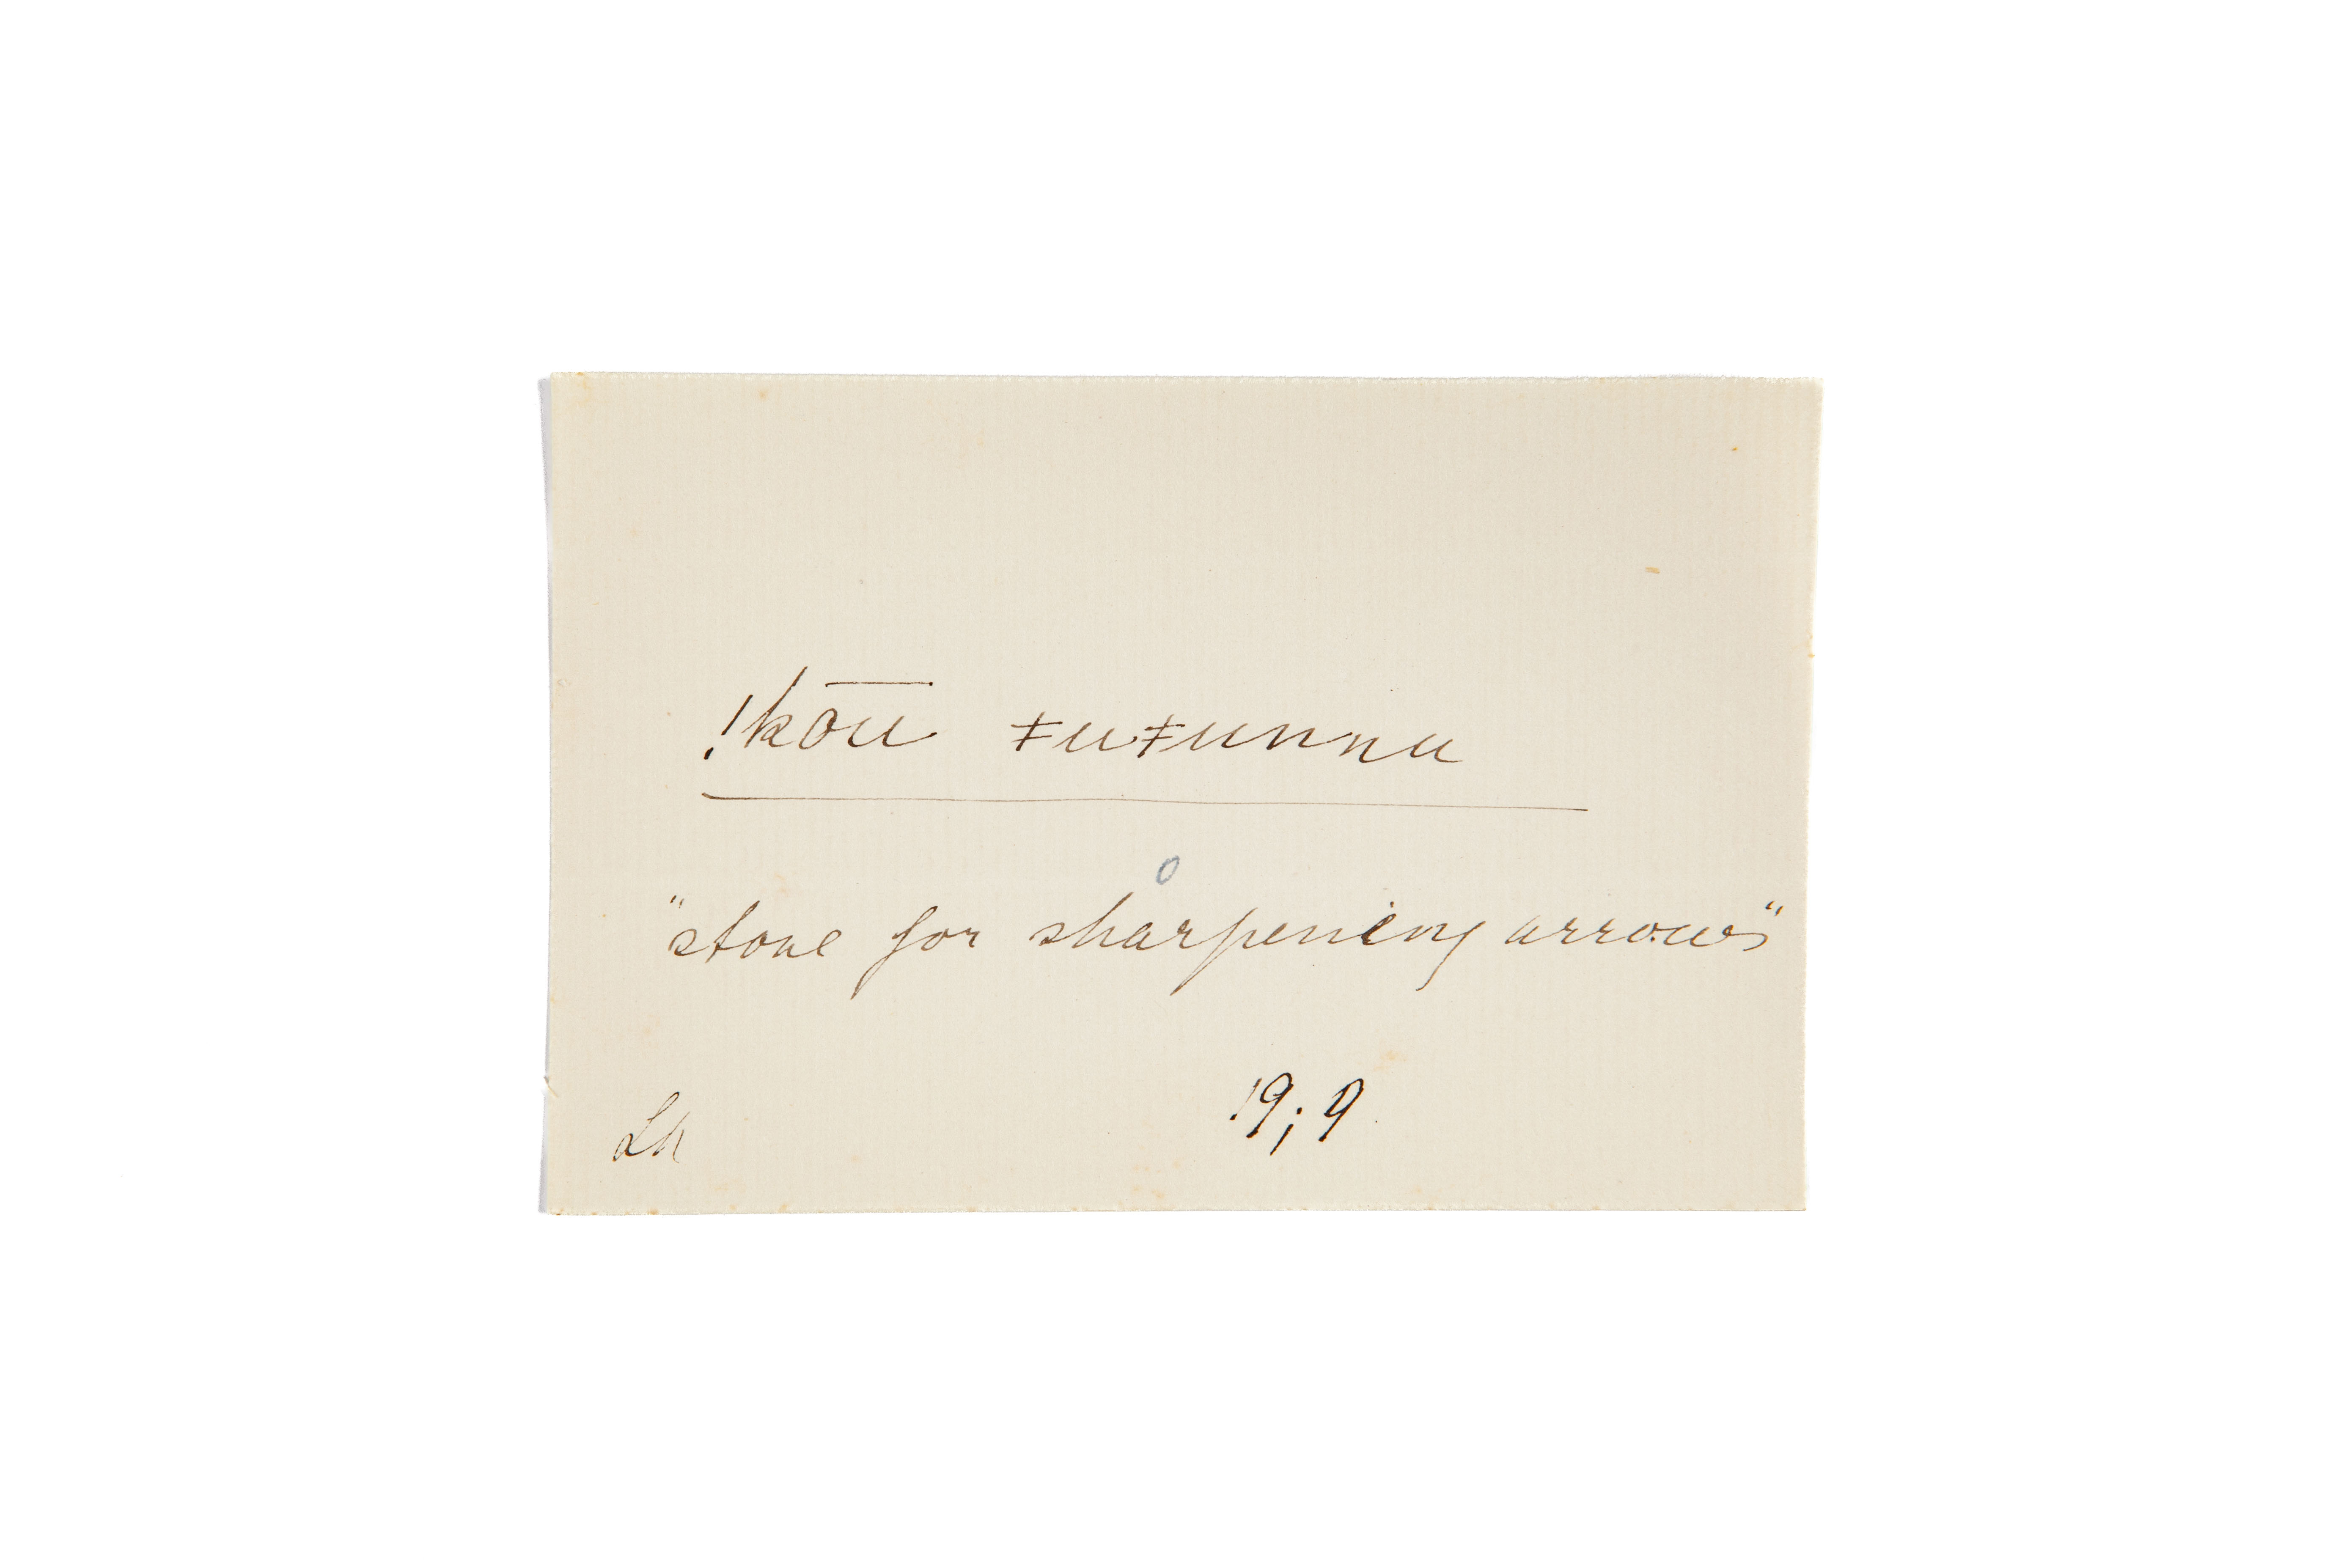 !kōū ǂuǂunna
o
"stone for sharpening arrows"
Lh 19; 9